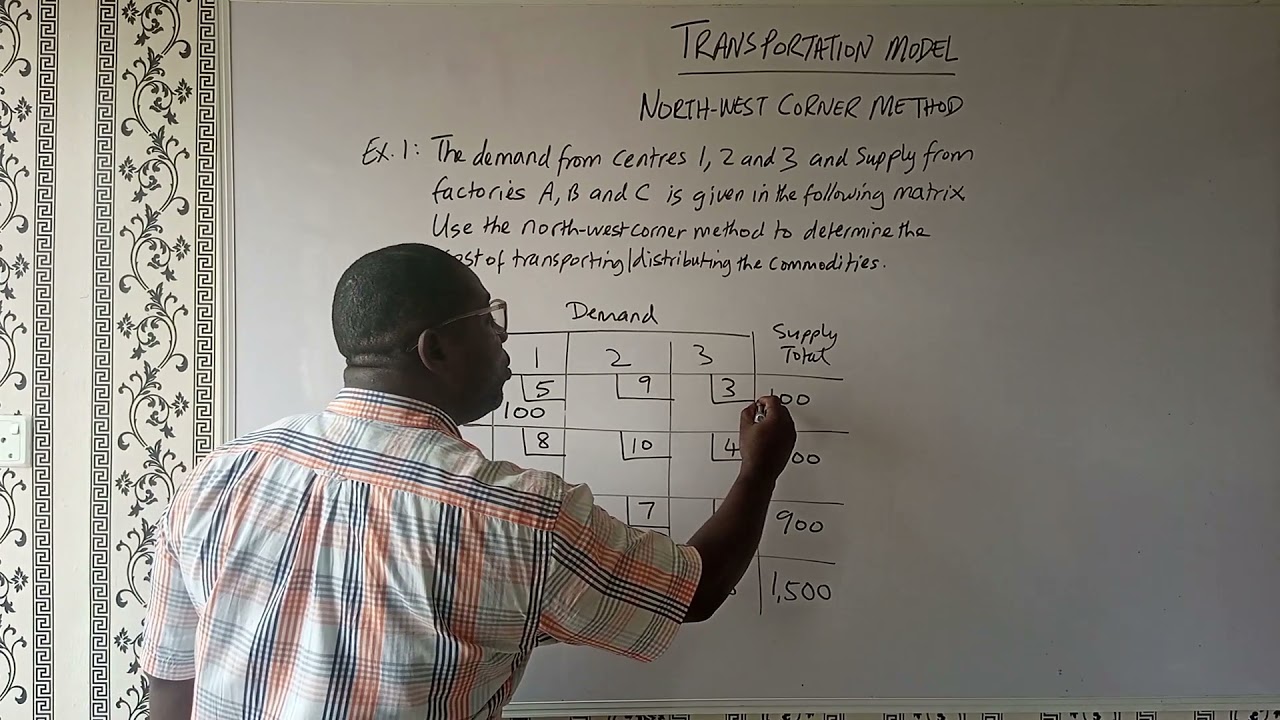 TRANSPORTATION MODEL
NORTH-WEST CORNER METHOD
Ex.1: The demand from centres 1, 2 and 3 and supply from
factories A, B and C is given in the following matrix.
Use the north-west corner method to determine the
of transporting/distributing the commodities.
Demand
Supply
1 2 3 Total
5 9 3
100
8 10 4
7 900
1,500